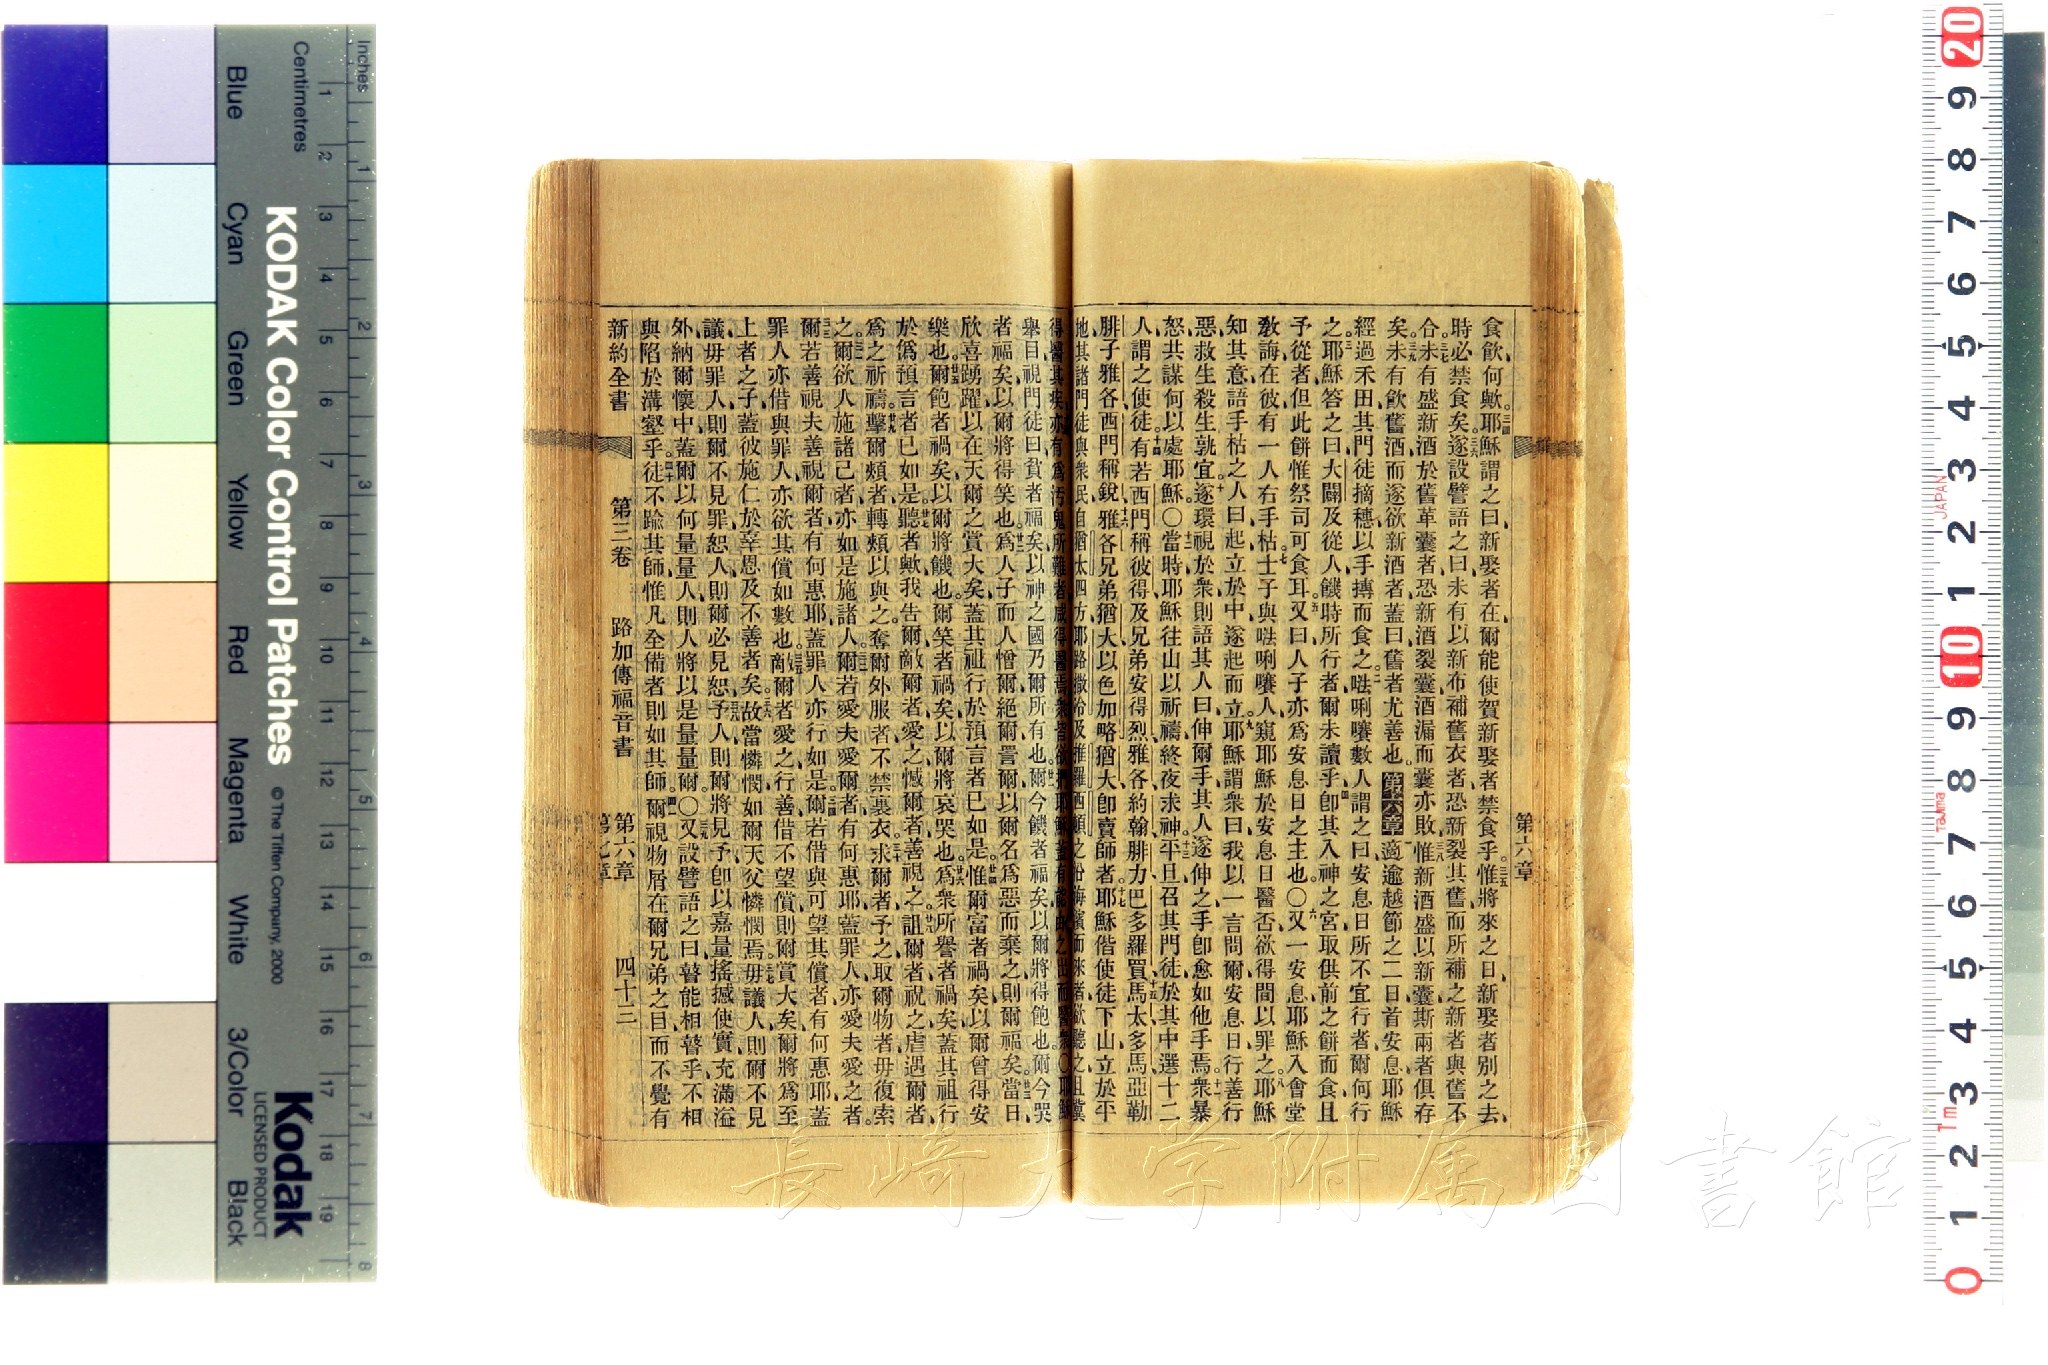 食飲何歟耶穌謂之曰新娶者在爾能使賀新娶者禁食乎惟將來之日新娶者別之去
時必禁食矣遂設譬語之曰未有以新布補舊衣者恐新裂其舊而所補之新者與舊不
合未有盛新酒於舊革囊者恐新酒裂囊酒漏而囊亦敗惟新酒盛以新囊斯兩者俱存
矣未有飲舊酒而遂欲新酒者蓋曰舊者尤善也第六章適逾越節之二日首安息耶穌
經過禾田其門徒摘穗以手摶而食之𠵽唎嚷數人謂之曰安息日所不宜行者爾何行
之耶穌答之曰大闢及從人饑時所行者爾未讀乎卽其入神之宮取供前之餅而食且
予從者但此餅惟祭司可食耳又曰人子亦為安息日之主也〇又一安息耶穌入會堂
教誨在彼有一人右手枯士子與𠵽唎嚷人窺耶穌於安息日醫否欲得間以罪之耶穌
知其意語手枯之人曰起立於中遂起而立耶穌謂衆曰我以一言問爾安息日行善行
惡救生殺生孰宜遂環視於衆則語其人曰伸爾手其人遂伸之手卽愈如他手焉衆暴
怒共謀何以處耶穌〇當時耶穌往山以祈禱終夜求神平旦召其門徒於其中選十二
人謂之使徒有若西門稱彼得及兄弟安得烈雅各約翰腓力巴多羅買馬太多馬亞勒
腓子雅各西門稱銳雅各兄弟猶大以色加略猶大卽賣師者耶穌偕使徒下山立於平
地其諸門徒與衆民自猶太四方耶路撒冷及推羅西頓之份海濱而來者欲聽之且冀
得醫其疾亦有為汚鬼所難者咸得醫焉衆皆欲捫耶穌蓋有能由之出而醫衆〇耶穌
舉目視門徒曰貧者福矣以神之國乃爾所有也爾今饑者福矣以爾將得飽也爾今哭
者福矣以爾將得笑也為人子而人憎爾絕爾詈爾以爾名為惡而棄之則爾福矣當日
欣喜踴躍以在天爾之賞大矣蓋其祖行於預言者已如是惟爾富者禍矣以爾曾得安
樂也爾飽者禍矣以爾將饑也爾笑者禍矣以爾將哀哭也為衆所譽者禍矣蓋其祖行
於偽預言者已如是聽者歟我告爾敵爾者愛之憾爾者善視之詛爾者祝之虐遇爾者
為之祈禱擊爾頰者轉頰以與之奪爾外服者不禁裏衣求爾者予之取爾物者毋復索
之爾欲人施諸己者亦如是施諸人爾若愛夫愛爾者有何惠耶蓋罪人亦愛夫愛之者
爾若善視夫善視爾者有何惠耶蓋罪人亦行如是爾若借與可望其償者有何惠耶蓋
罪人亦借與罪人亦欲其償如數也敵爾者愛之行善借不望償則爾賞大矣爾將為至
上者之子蓋彼施仁於辜恩及不善者矣故當憐憫如爾天父憐憫焉毋議人則爾不見
議毋罪人則爾不見罪恕人則爾必見恕予人則爾將見予卽以嘉量搖撼使實充滿溢
外納爾懷中蓋爾以何量量人則人將以是量量爾〇又設譬語之曰瞽能相瞽乎不相
與陷於溝壑乎徒不踰其師惟凡全備者則如其師爾視物屑在爾兄弟之目而不覺有
新約全書 第三卷 路加傳福音書 第六章 四十三
第七章
第六章
長崎大学附属図書館
KODAK Color Control Patches
© The Tiffen Company, 2000
Kodak
LICENSED PRODUCT
Inches
Centimetres
Blue
Cyan
Green
Yellow
Red
Magenta
White
3/Color
Black
JAPAN
Tajima